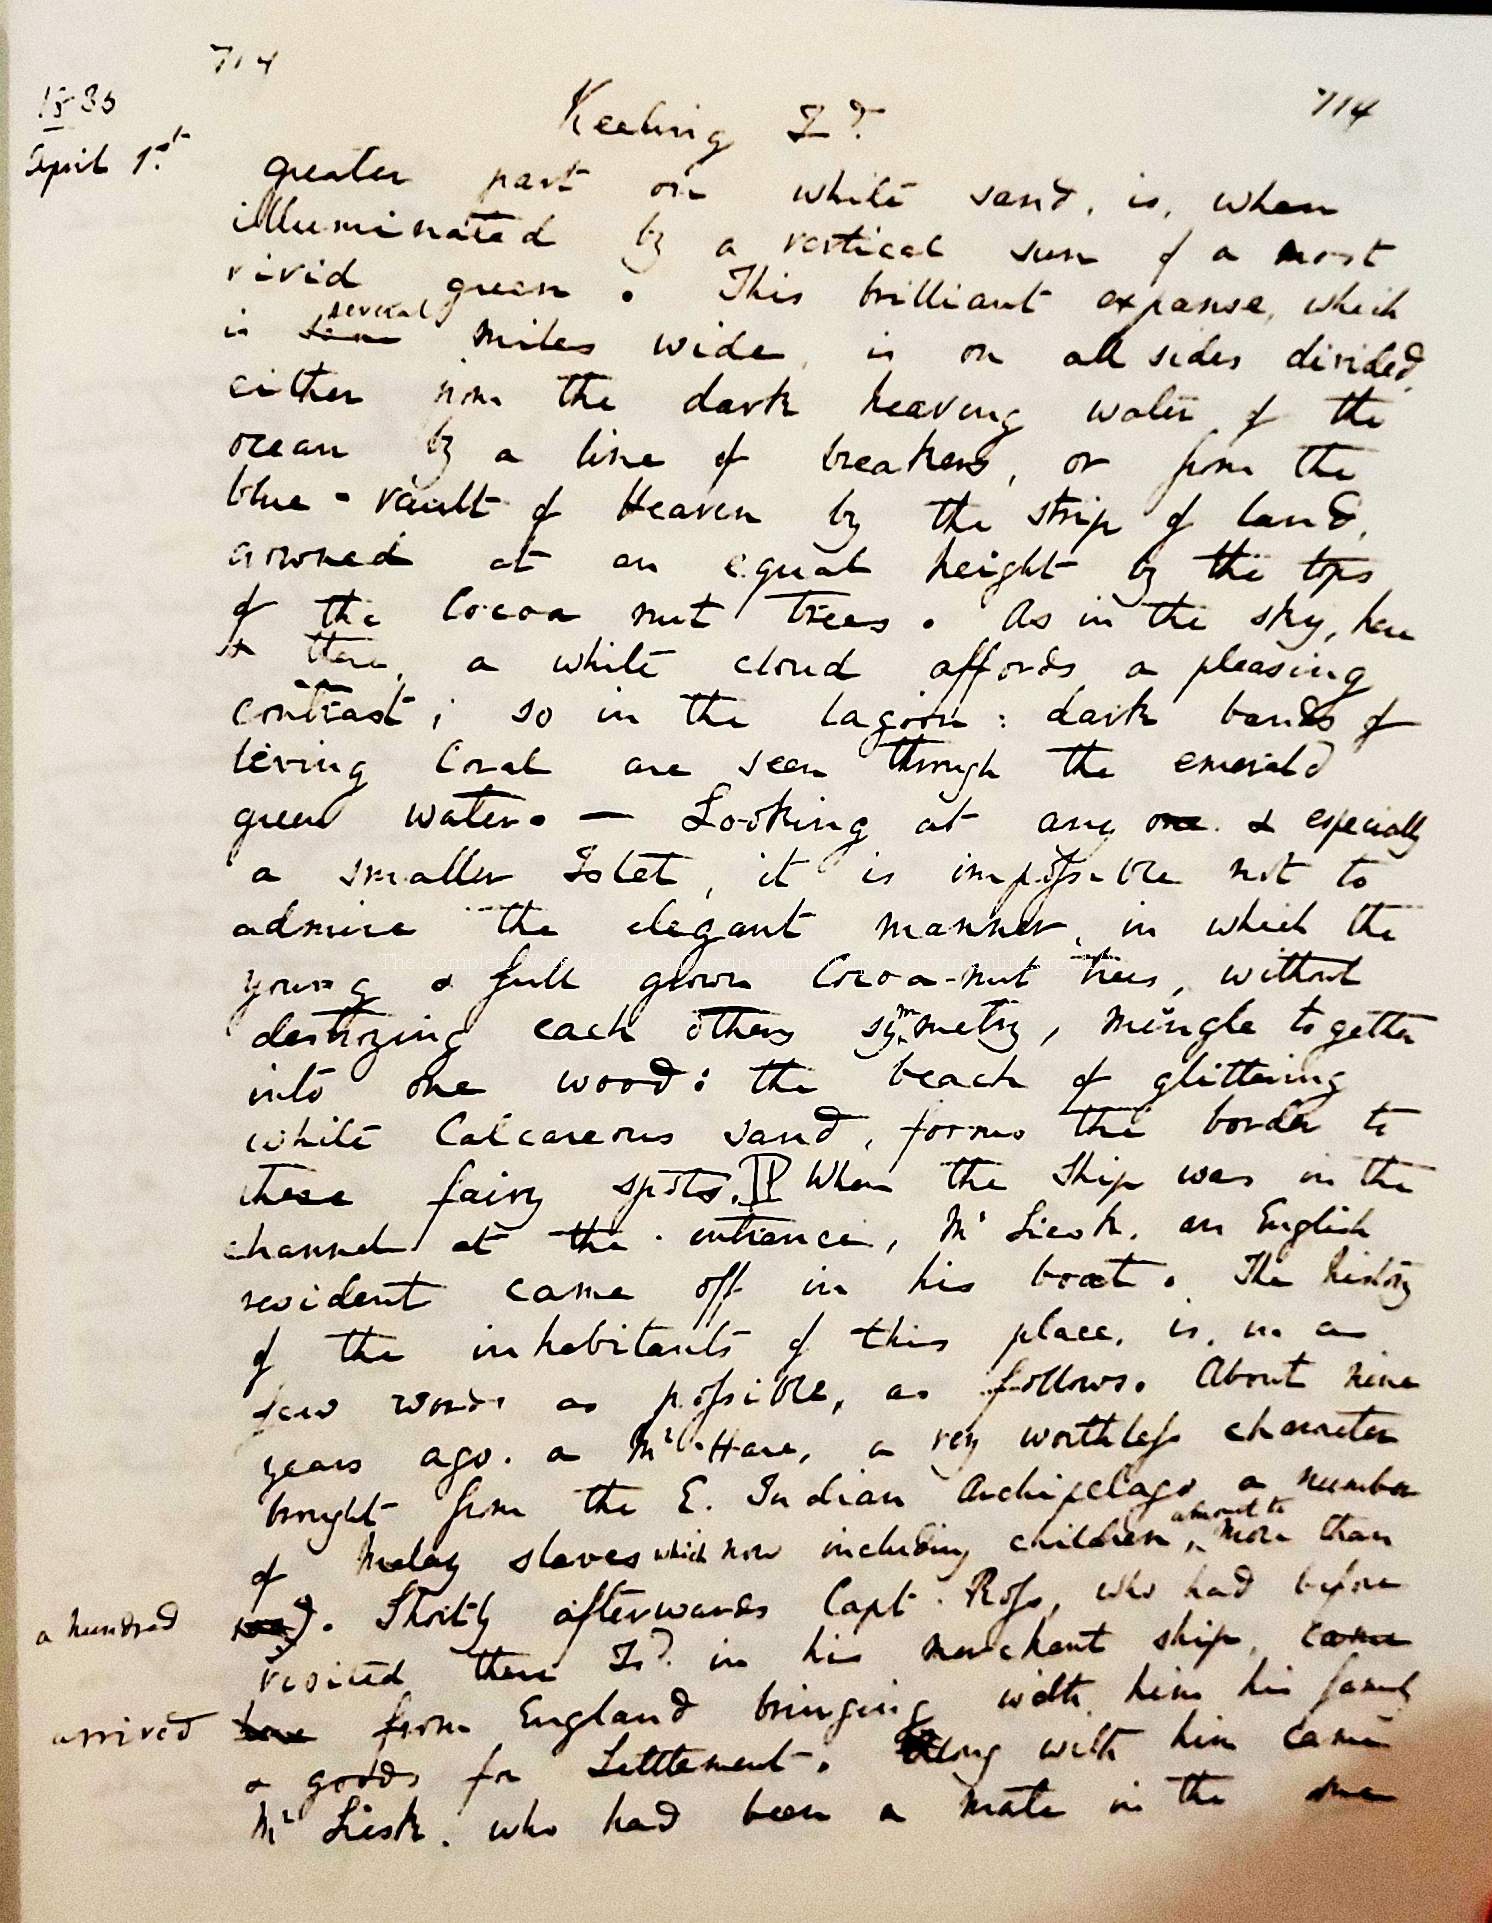 714
714
1836
April 1st
Keeling Id
greater part on white sand, is, when
illuminated by a vertical sun of a most
vivid green. This brilliant expanse, which
several
is some miles wide, is on all sides divided,
either from the dark heaving water of the
ocean by a line of breakers, or from the
blue - vault of Heaven by the strip of land,
crowned at an equal height by the tops
of the Cocoa nut trees. As in the sky, here
& there, a white cloud affords a pleasing
contrast; so in the lagoon: dark bands of
living Coral are seen through the emerald
green water. — Looking at any one & especially
a smaller Islet, it is impossible not to
admire the elegant manner, in which the
young & full grown Cocoa-nut trees, without
destroying each others symmetry, mingle together
into one wood: the beach of glittering
white Calcareous sand, forms the border to
these fairy spots. When the Ship was in the
channel at the entrance, Mr Liesk, an English
resident came off in his boat. The history
of the inhabitants of this place, is, in as
few words as possible, as follows. About nine
years ago, a Mr Hare, a very worthless character
brought from the E. Indian Archipelago a number
amount to
of Malay slaves which now including children, more than
a hundred
. Shortly afterwards Capt. Ross, who had before
visited these Isd in his merchant ship, came
arrived
from England bringing with him his family
& goods for Settlement. Along with him came
Mr Liesk, who had been a mate in the same